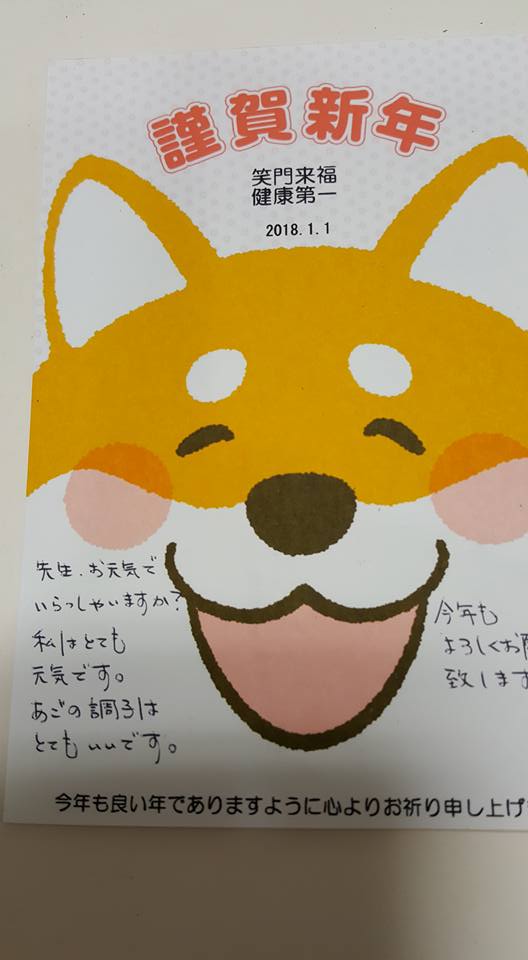 謹賀新年
笑門来福
健康第一
2018.1.1
先生、お元気で
いらっしゃいますか?
私はとても
元気です。
あごの調子は
とてもいいです。
今年も
よろしくお
致します
今年も良い年でありますように心よりお祈り申し上げ